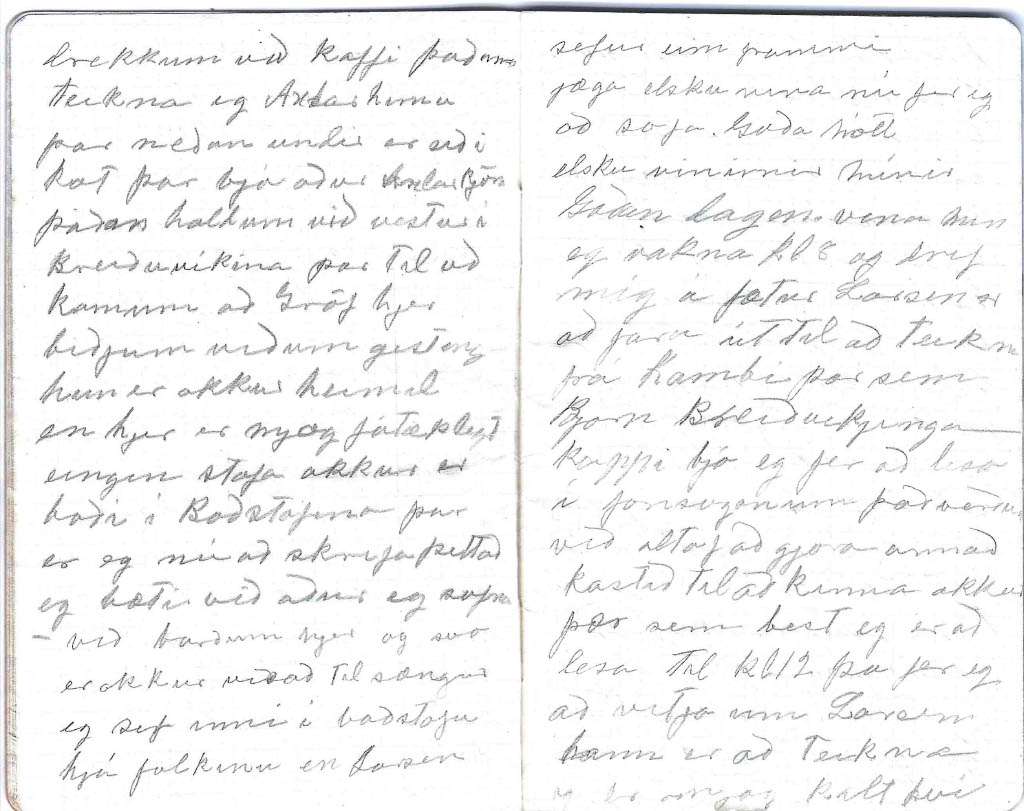 drekkum við kaffi þaðan
teikna eg Axlarhirnu
þar neðan undir er
kot þar bjó aður Axlar Björn
þaðan höldum við vestur í
Breiðuvíkina þar til að
komum að Gröf hjer
biðjum við um gisting
hun er okkur heimil
en hjer er mjög fátæklegt
eingin stofa okkur er
boði í Baðstofuna þar
er eg nú að skrifa þettað
eg bæti við aður eg sofna
– við borðum hjer og svo
er okkur visað til sængur
eg sef inni í baðstofu
hjá folkinu en Larsen
sefur
jæga elsku vina nú fer eg
að sofa. Goða nótt
elsku vinirnir mínir
Goden dagen vina min
eg vakna kl 8 og dríf
mig á fætur Larsen er
að fara út til að teikna
frá Kambi þar sem
Bjørn Breiðvekjinga
kappi bjó eg fer að lesa
í fornsögonum það verðum
við altaf að gjöra annað
kastið til að kinna okkur
þær sem best eg er að
lesa til kl 12 þa fer eg
að vitja um Larsen
hann er að teikna
og er mjög kalt því